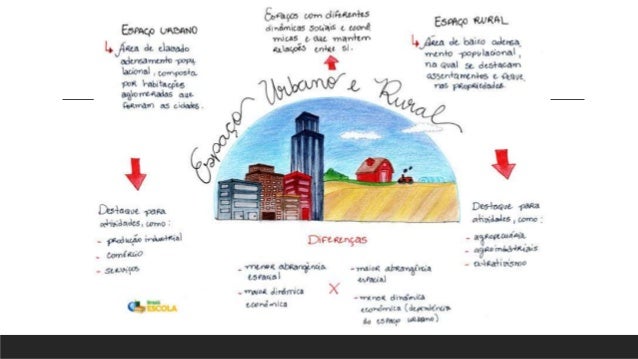 Espaço Urbano
Área de elevado
adensamento popu
lacional, composta
por habitações
aglomeradas que
formam as cidades.
Espaços com diferentes
dinâmicas sociais e econô
micas e que mantem
relações entre si.
Espaço Rural
Área de baixo adensa
mento populacional,
na qual se destacam
assentamentos e
nas propriedades.
Espaço Urbano e Rural
Destaque para
atividades, como:
- produção industrial
- comércio
- serviços
Destaque para
atividades, como:
- agropecuária
- agroindustriais
- extrativismo
Diferenças
- menor abrangência
espacial
- maior dinâmica
econômica
X
- maior abrangência
espacial
- menor dinâmica
econômica (dependência
do espaço urbano)
Brasil
ESCOLA